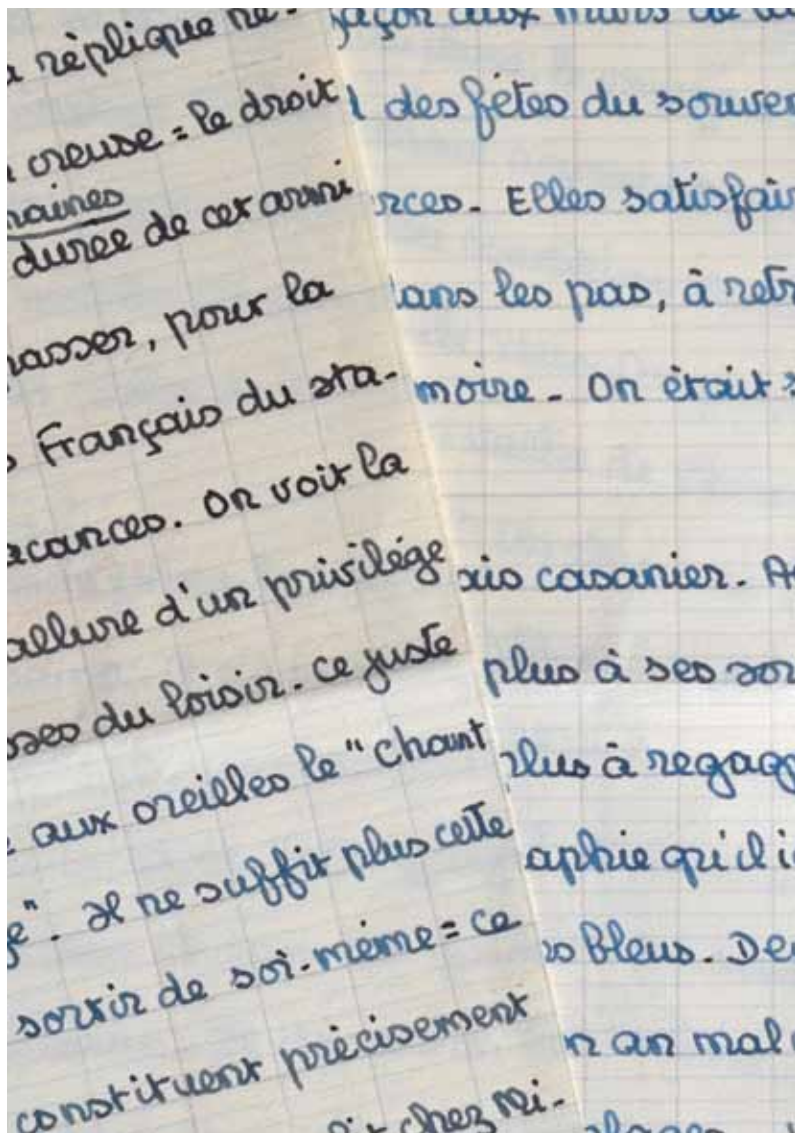 réplique ne-
creuse = le droit
maines
durée de cet
asser, pour la
Français du sta-
acances. On voit la
allure d'un privilége
ses du loisir. Ce juste
aux oreilles le "chant
e". Il ne suffit plus cette
sortir de soi-même = ce
constituent précisement
chez Mi-
façon aux murs de
des fêtes du souve
nces. Elles satisfai
ans les pas, à retr
moire. On était s
ais casanier. A
plus à ses sor
plus à regag
aphie qu'il i
s Bleus. De
n an mal